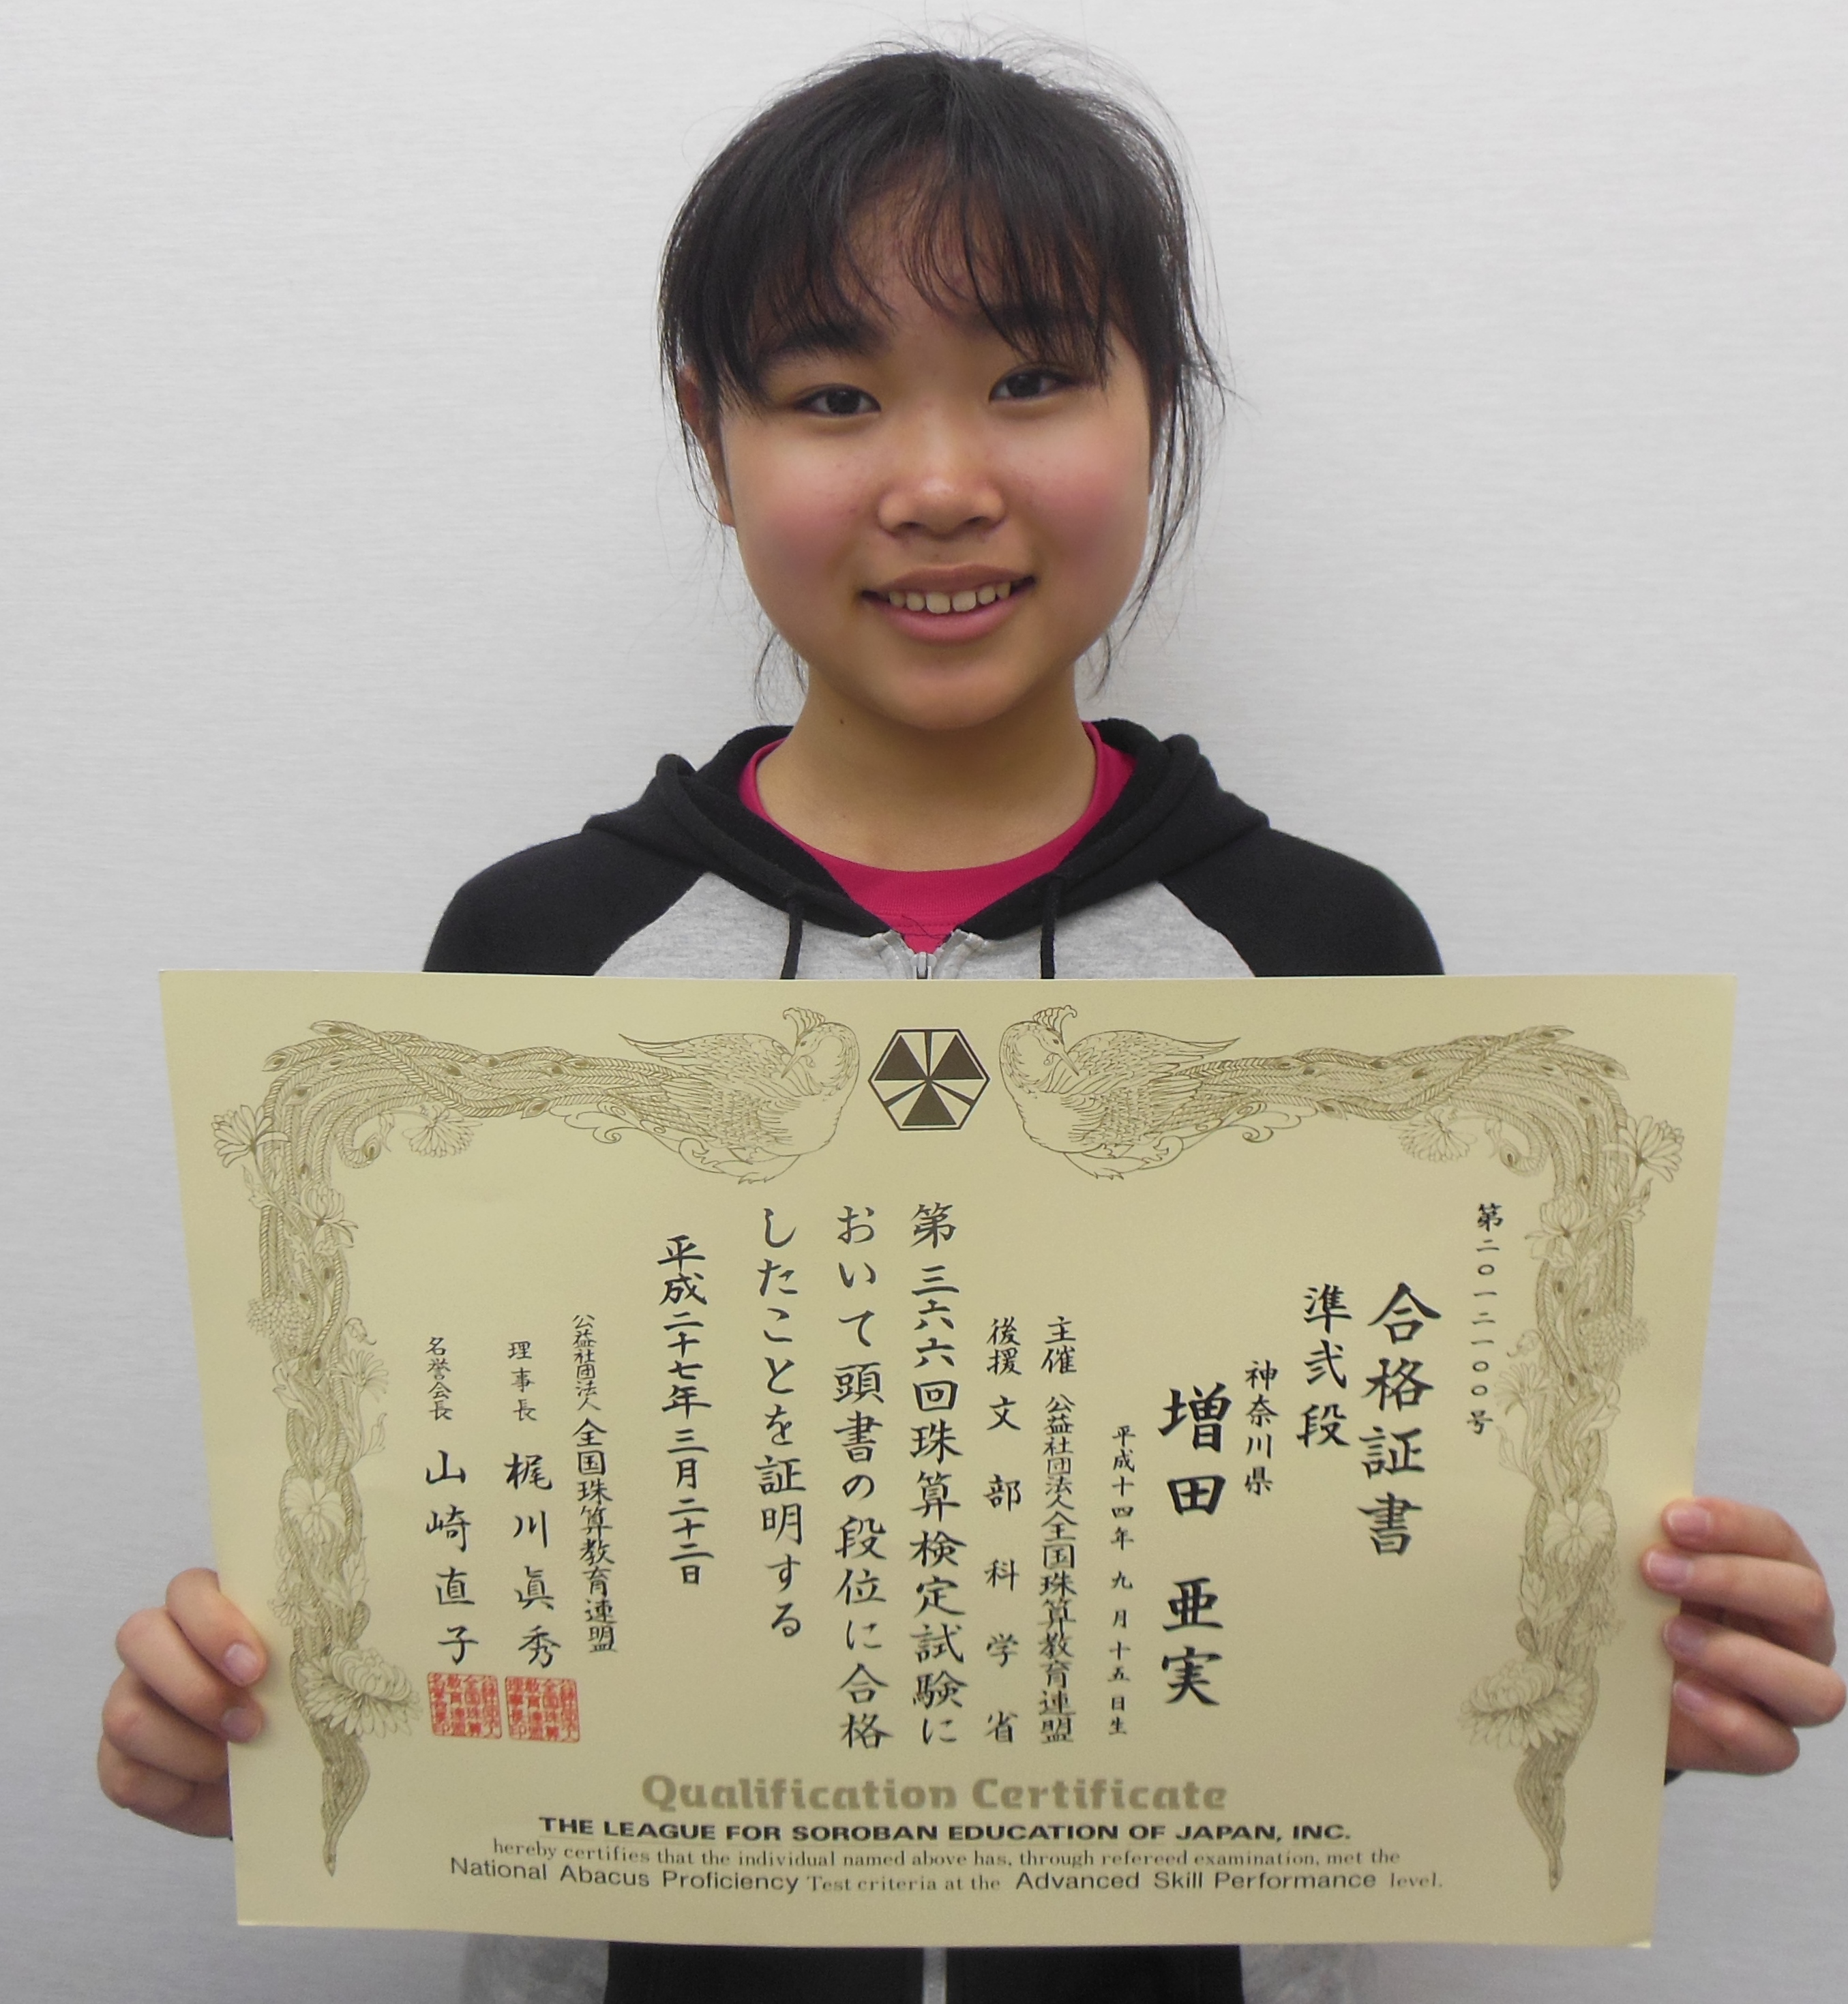 第二〇一二一〇〇号
合格証書
準弐段
神奈川県
増田亜実
平成十四年九月十五日生
主催 公益社団法人全国珠算教育連盟
後援 文部科学省
第三六六回珠算検定試験に
おいて頭書の段位に合格
したことを証明する
平成二十七年三月二十二日
公益社団法人全国珠算教育連盟
理事長 梶川眞秀
名誉会長 山崎直子
Qualification Certificate
THE LEAGUE FOR SOROBAN EDUCATION OF JAPAN, INC.
hereby certifies that the individual named above has, through refereed examination, met the
National Abacus Proficiency Test criteria at the Advanced Skill Performance level.